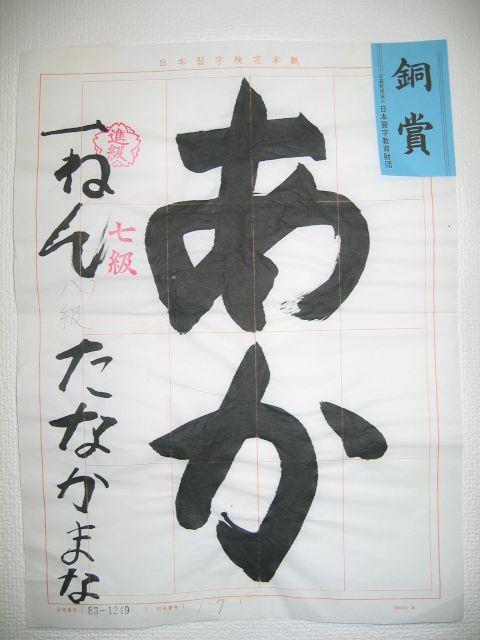 日本習字検定半紙
銅賞
公益財団法人 日本習字教育財団
あか
進級
七級
一ねん たなかまな
八級
83-1249
出品番号
1-7